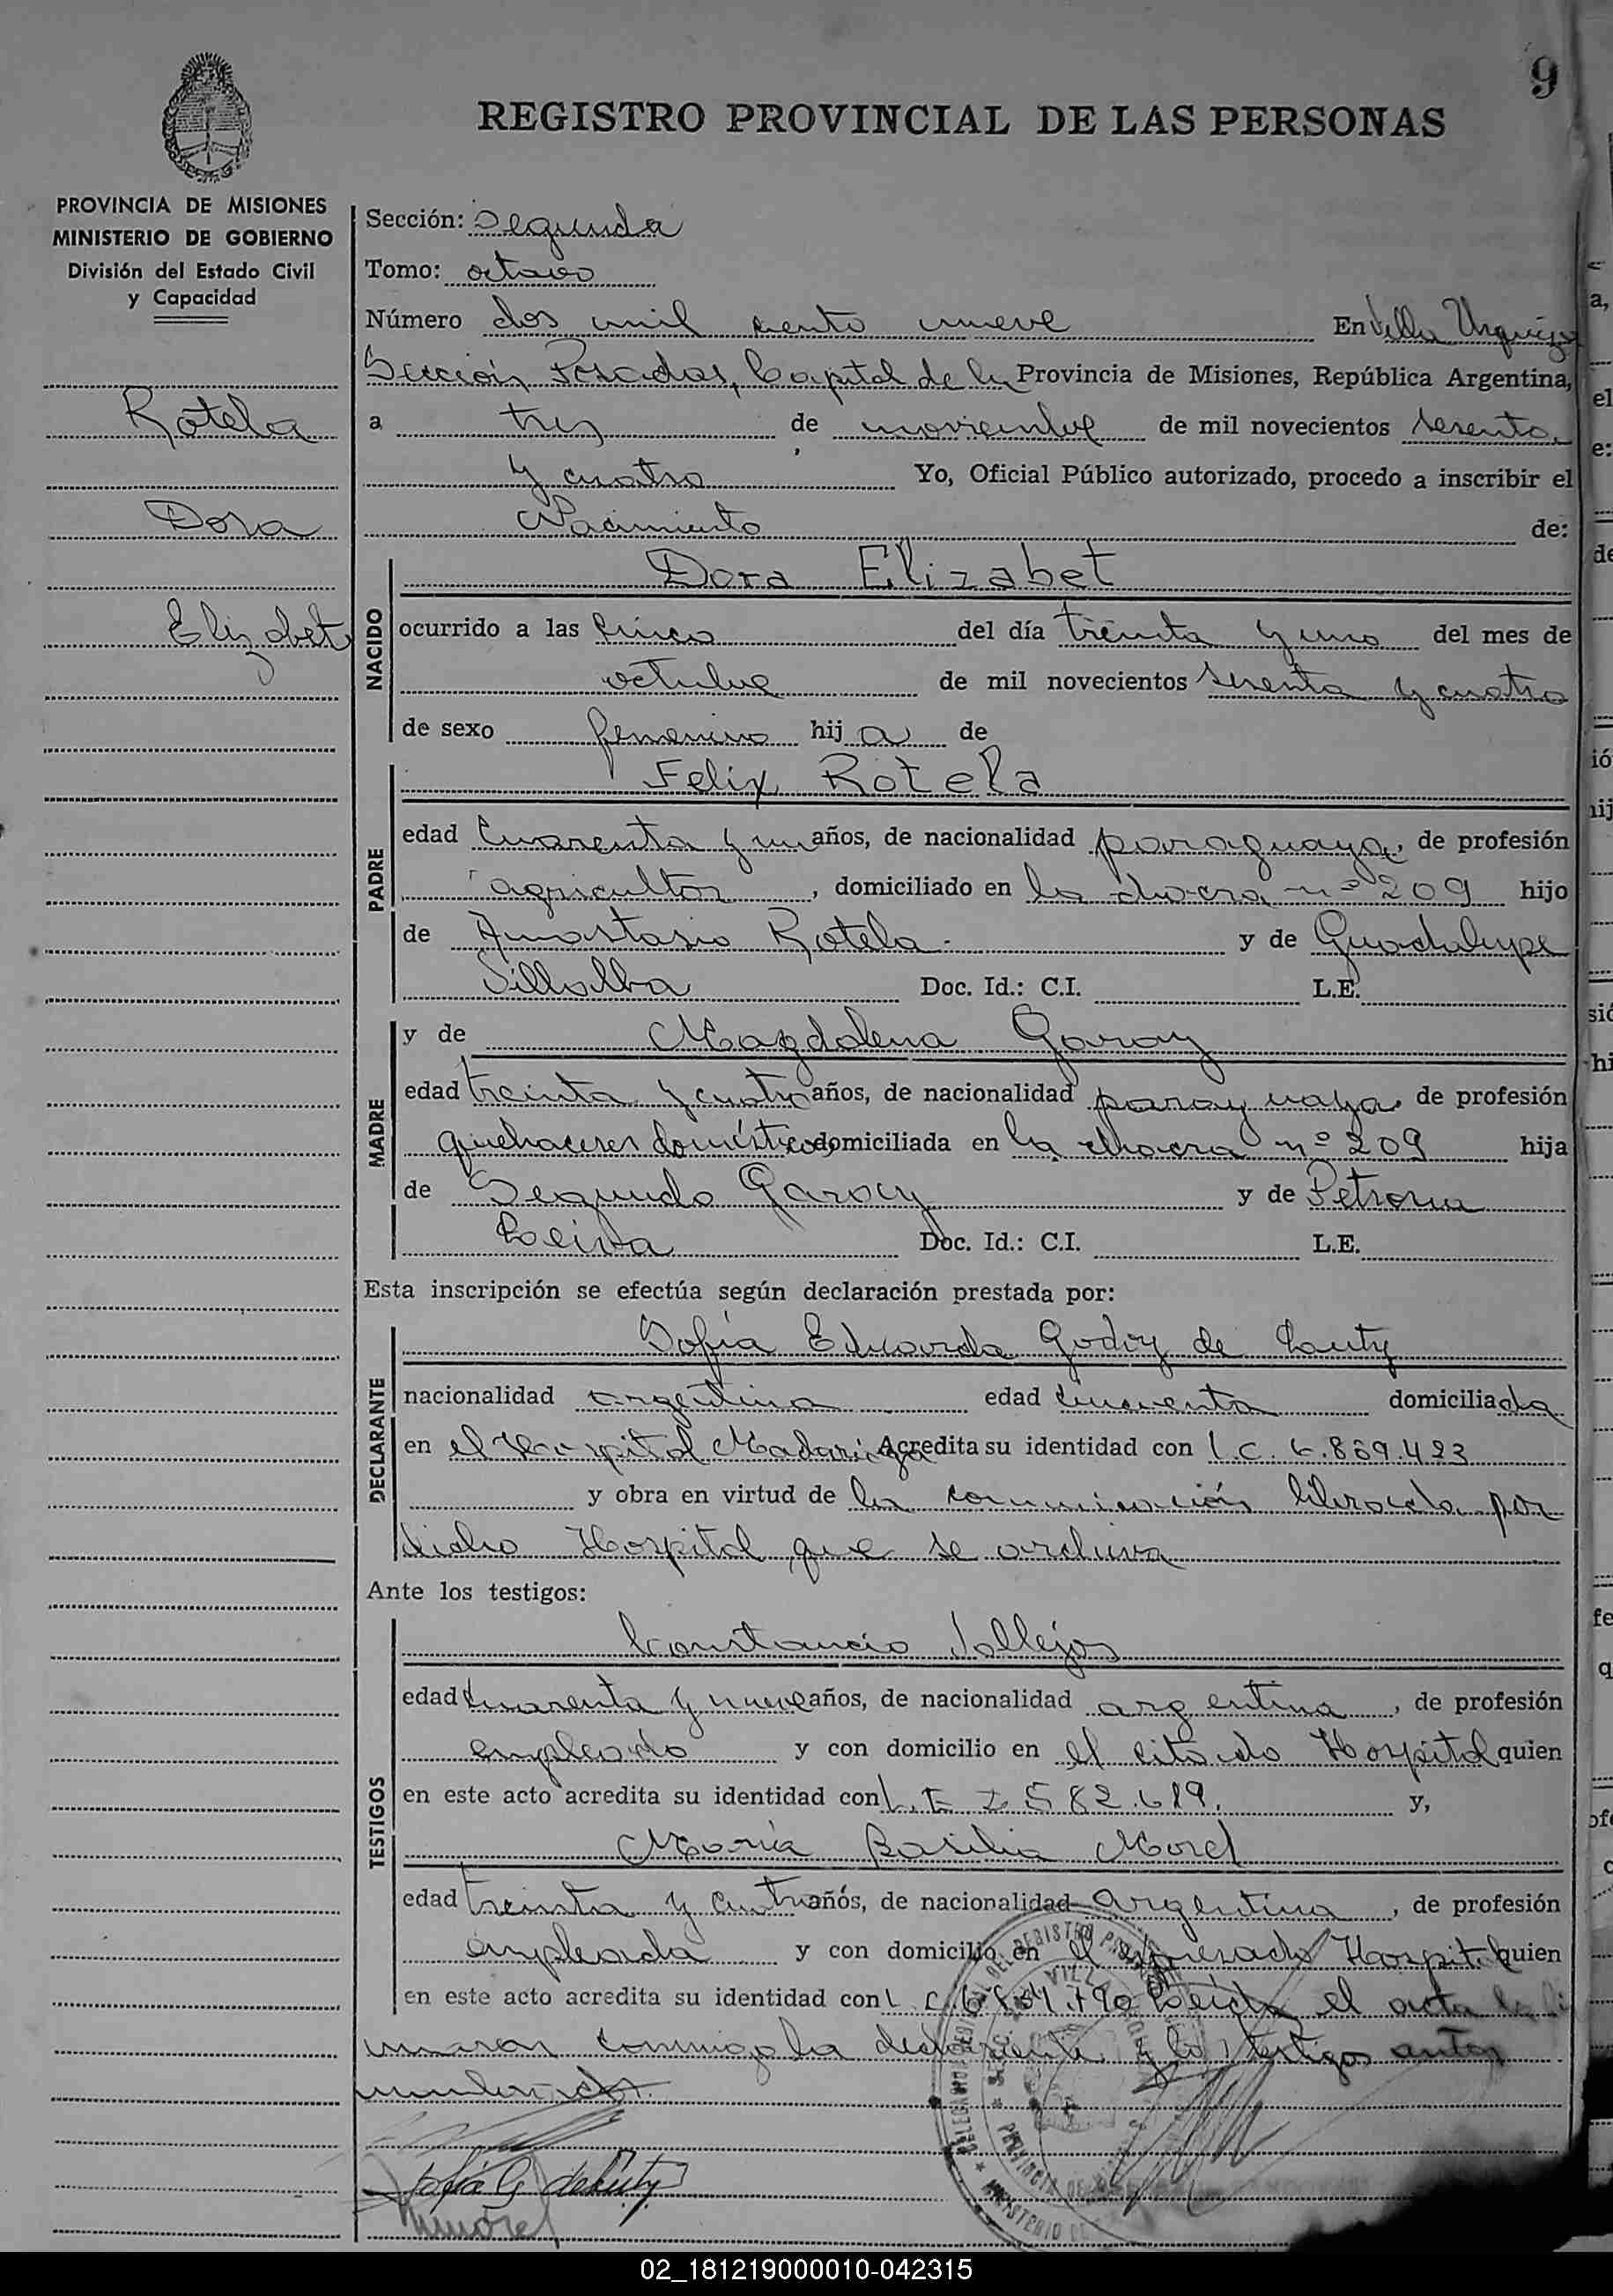 9
REGISTRO PROVINCIAL DE LAS PERSONAS
PROVINCIA DE MISIONES
MINISTERIO DE GOBIERNO
División del Estado Civil
y Capacidad
Rotela
Dora
Elizabet
Sección: Segunda
Tomo: octavo
Número dos mil ciento nueve En Villa Urquiza
Sección Posadas, Capital de la Provincia de Misiones, República Argentina,
a tres de noviembre de mil novecientos sesenta
y cuatro Yo, Oficial Público autorizado, procedo a inscribir el
Nacimiento de:
NACIDO
Dora Elizabet
ocurrido a las cinco del día treinta y uno del mes de
octubre de mil novecientos sesenta y cuatro
de sexo femenino hij a de
PADRE
Felix Rotela
edad cuarenta y un años, de nacionalidad paraguaya, de profesión
agricultor, domiciliado en la chacra nº 209 hijo
de Anastasio Rotela y de Guadalupe
Villalba Doc. Id.: C.I. L.E.
MADRE
y de Magdalena Garay
edad treinta y cuatro años, de nacionalidad paraguaya, de profesión
quehaceres domésticos domiciliada en la chacra nº 209 hija
de Segundo Garay y de Petrona
Leiva Doc. Id.: C.I. L.E.
Esta inscripción se efectúa según declaración prestada por:
DECLARANTE
Sofía Eduarda Godoy de
nacionalidad argentina edad cincuenta domiciliada
en el Hospital Madariaga Acredita su identidad con L.C. 6.839.423
y obra en virtud de la comunicación librada por
dicho Hospital que se archiva
Ante los testigos:
TESTIGOS
Constancio Vallejos
edad cuarenta y nueve años, de nacionalidad argentina, de profesión
empleado y con domicilio en el citado Hospital quien
en este acto acredita su identidad con L.E. 7.582.619. y,
María Basilia Morel
edad treinta y cuatro años, de nacionalidad argentina, de profesión
empleada y con domicilio en el expresado Hospital quien
en este acto acredita su identidad con L.C. Leída el acta la fir
maron conmigo la declarante y los testigos antes
nombrados.
02_181219000010-042315